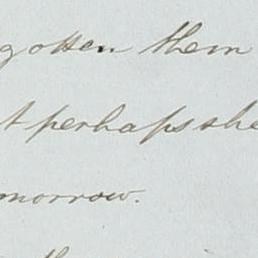 gotten them
t perhaps she
morrow.